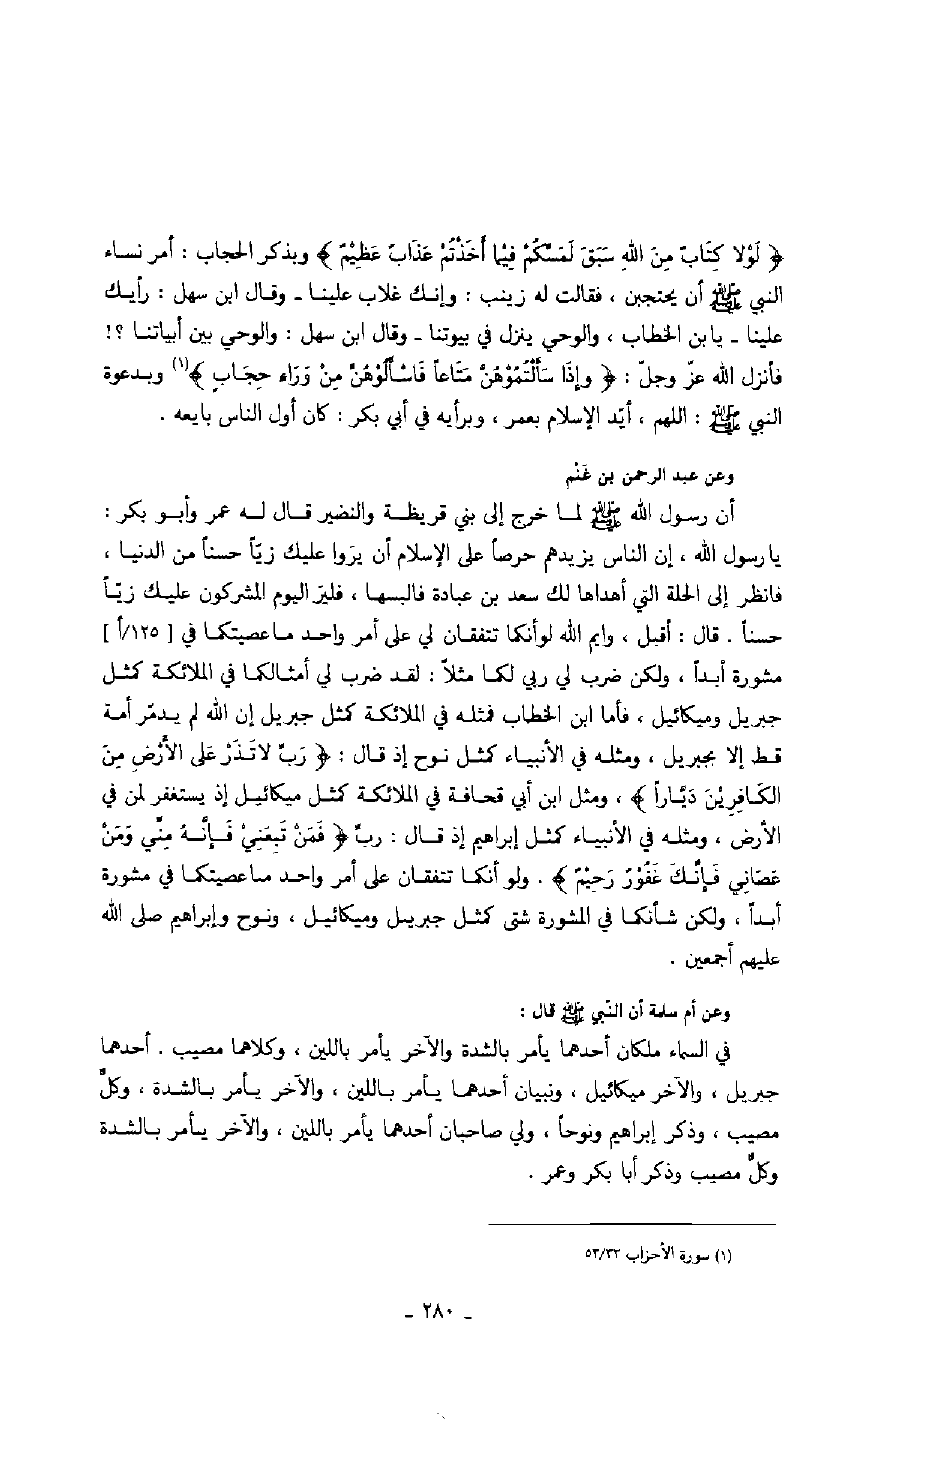 ﴿ لَوْلا كِتَابٌ مِنَ اللهِ سَبَقَ لَمَسَّكُمْ فِيْمَا أَخَذْتُمْ عَذَابٌ عَظِيْمٌ ﴾ وبذكر الحجاب : أمر نساء
النبي ﷺ أن يحتجبن ، فقالت له زينب : وإنـك غلاب علينـا ـ وقـال ابن سهل : رأيـك
علينا ـ يا بن الخطاب ، والوحي ينزل في بيوتنا ـ وقال ابن سهل : والوحي بين أبياتنـا ؟!
فأنزل الله عزّ وجلّ : ﴿ وإذَا سَأَلْتُمُوْهُنَّ مَتَاعاً فَاسْأَلُوْهُنَّ مِنْ وَرَاء حِجَابٍ ﴾(١) وبـدعوة
النبي ﷺ : اللهم ، أيّد الإسلام بعمر ، وبرأيه في أبي بكر : كان أول الناس بايعه .
وعن عبد الرحمن بن غَنْم
أن رسول الله ﷺ لمـا خرج إلى بني قريظـة والنضير قـال لـه عمر وأبـو بكر :
يا رسول الله ، إن الناس يزيدهم حرصاً على الإسلام أن يرَوا عليك زيّاً حسناً من الدنيا ،
فانظر إلى الحلة التي أهداها لك سعد بن عبادة فالبسها ، فليَرَ اليوم المشركون عليـك زيّـاً
حسناً . قال : أفعل ، وايم الله لو أنكما تتفقان لي على أمر واحـد مـا عصيتكما في [ ١٢٥/أ ]
مشورة أبـداً ، ولكن ضرب لي ربي لكما مثلاً : لقـد ضرب لي أمثـالكما في الملائكـة كمثـل
جبريل وميكائيل ، فأما ابن الخطاب فمثله في الملائكة كمثل جبريل إن الله لم يـدمّر أمـة
قـط إلا بجبريل ، ومثلـه في الأنبيـاء كمثـل نوح إذ قـال : ﴿ رَبِّ لا تَـذَرْ عَلى الأَرْضِ مِنَ
الكَافِرِيْنَ دَيَّاراً ﴾ ، ومثل ابن أبي قحـافـة في الملائكة كمثـل ميكائيـل إذ يستغفر لمن في
الأرض ، ومثلـه في الأنبيـاء كمثـل إبراهيم إذ قـال : ربِّ ﴿ فَمَنْ تَبِعَنِيْ فَـإنَّـهُ مِنِّي وَمَنْ
عَصَانِي فَـإنَّـكَ غَفُوْرٌ رَحِيْمٌ ﴾ . ولو أنكما تتفقـان على أمر واحـد مـا عصيتكما في مشورة
أبـداً ، ولكن شـأنكما في المشورة شتى كمثـل جبريـل وميكائيـل ، ونوح وإبراهيم صلى الله
عليهم أجمعين .
وعن أم سلمة أن النّبي ﷺ قال :
في السماء ملكان أحدهما يأمر بالشدة والآخر يأمر باللين ، وكلاهما مصيب . أحدهما
جبريل ، والآخر ميكائيل ، ونبيان أحـدهمـا يـأمر بـاللين ، والآخر يـأمر بـالشدة ، وكلٌّ
مصيب ، وذكر إبراهيم ونوحاً ، ولي صاحبان أحدهما يأمر باللين ، والآخر يـأمر بـالشدة
وكلٌّ مصيب وذكر أبا بكر وعمر .
(١) سورة الأحزاب ٥٣/٣٣
ـ ٢٨٠ ـ